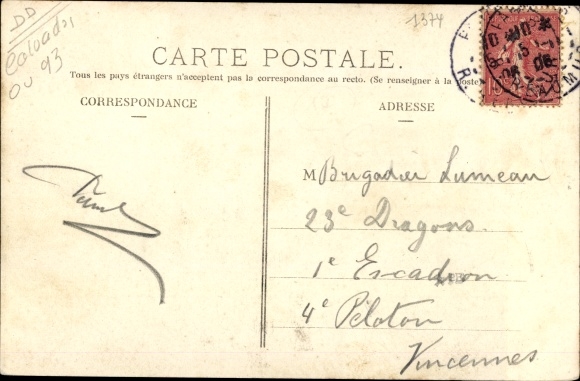 DD
ou 93
1374
CARTE POSTALE.
Tous les pays étrangers n'acceptent pas la correspondance au recto. (Se renseigner à la poste)
CORRESPONDANCE
ADRESSE
M Brigadier Lumeau
23e Dragons
1e Escadron
4e Péloton
Vincennes
Paul